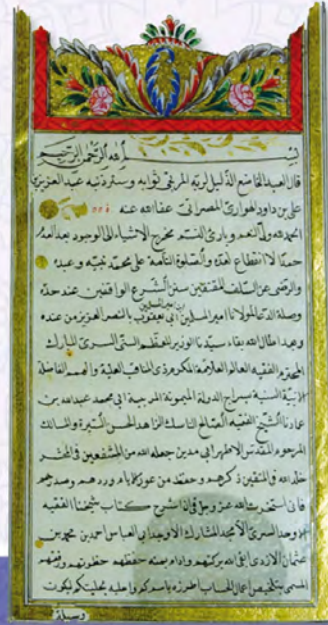 بسم الله الرحمن الرحيم
قال العبد الخاضع الذليل لربه المرتجي لثوابه وستر ذنبه عبد العزيز بن
علي بن داود الهواري المصراتي عفا الله عنه
الحمد لله ولي النعم وبارئ النسم مخرج الأشياء إلى الوجود بعد العدم
حمدا لا انقطاع لعده والصلوة التامة على محمد نبيه وعبده
والرضى عن السلف المقتفين سنن الشرع الواقفين عند حده
وصلة الدعا لمولانا امير المسلمين ابي يعقوب بالنصر العزيز من عنده
وبعد اطال الله بقاء سيدنا الوزير المعظم السني السري المبارك
المحترم الفقيه العالم العلامة المكرم ذي المناقب العلية والهمم الفاضلة
السنية سراج الدولة الميمونة المرجبة ابي محمد عبد الله بن
عمادنا الشيخ الفقيه الصالح الناسك الزاهد الحسن السيرة والمسالك
المرحوم المقدس الاطهر ابي مدين جعله الله من المشفعين في
خلد الله في المتقين ذكرهم وحفظ من
فاني استخرت الله عز وجل في ان اشرح كتاب شيخنا الفقيه
الاوحد السري الامجد المشارك الاوحد ابي العباس احمد بن محمد بن
عثمان الازدي ابقى الله بركتهم وادام بمنه حفظهم
المسمى بتلخيص اعمال الحساب اطرزه باسمكم واحليه بحليتكم ليكون
وسيلة